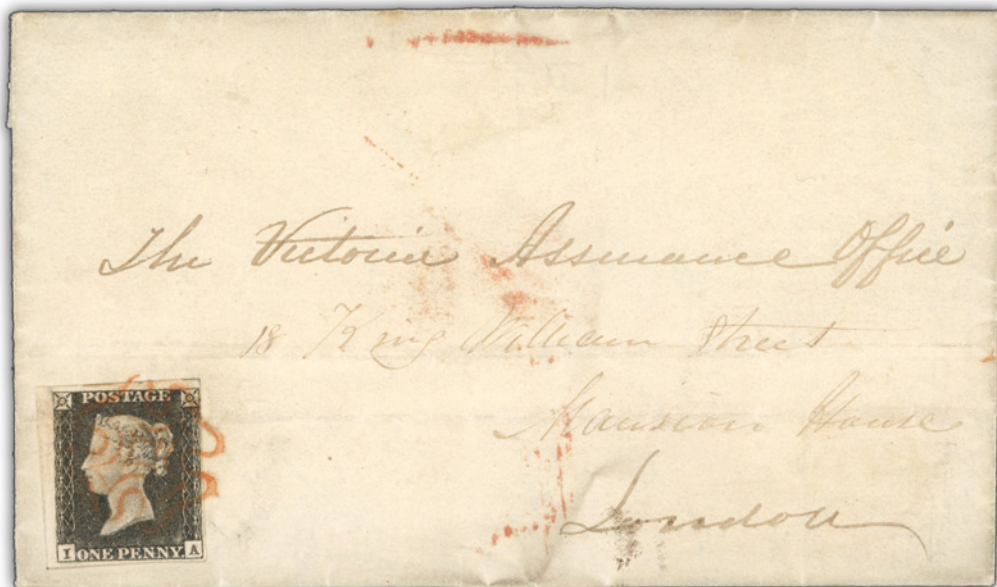 The Victoria Assurance Office
18 King William Street
Mansion House
London
POSTAGE
I A
ONE PENNY